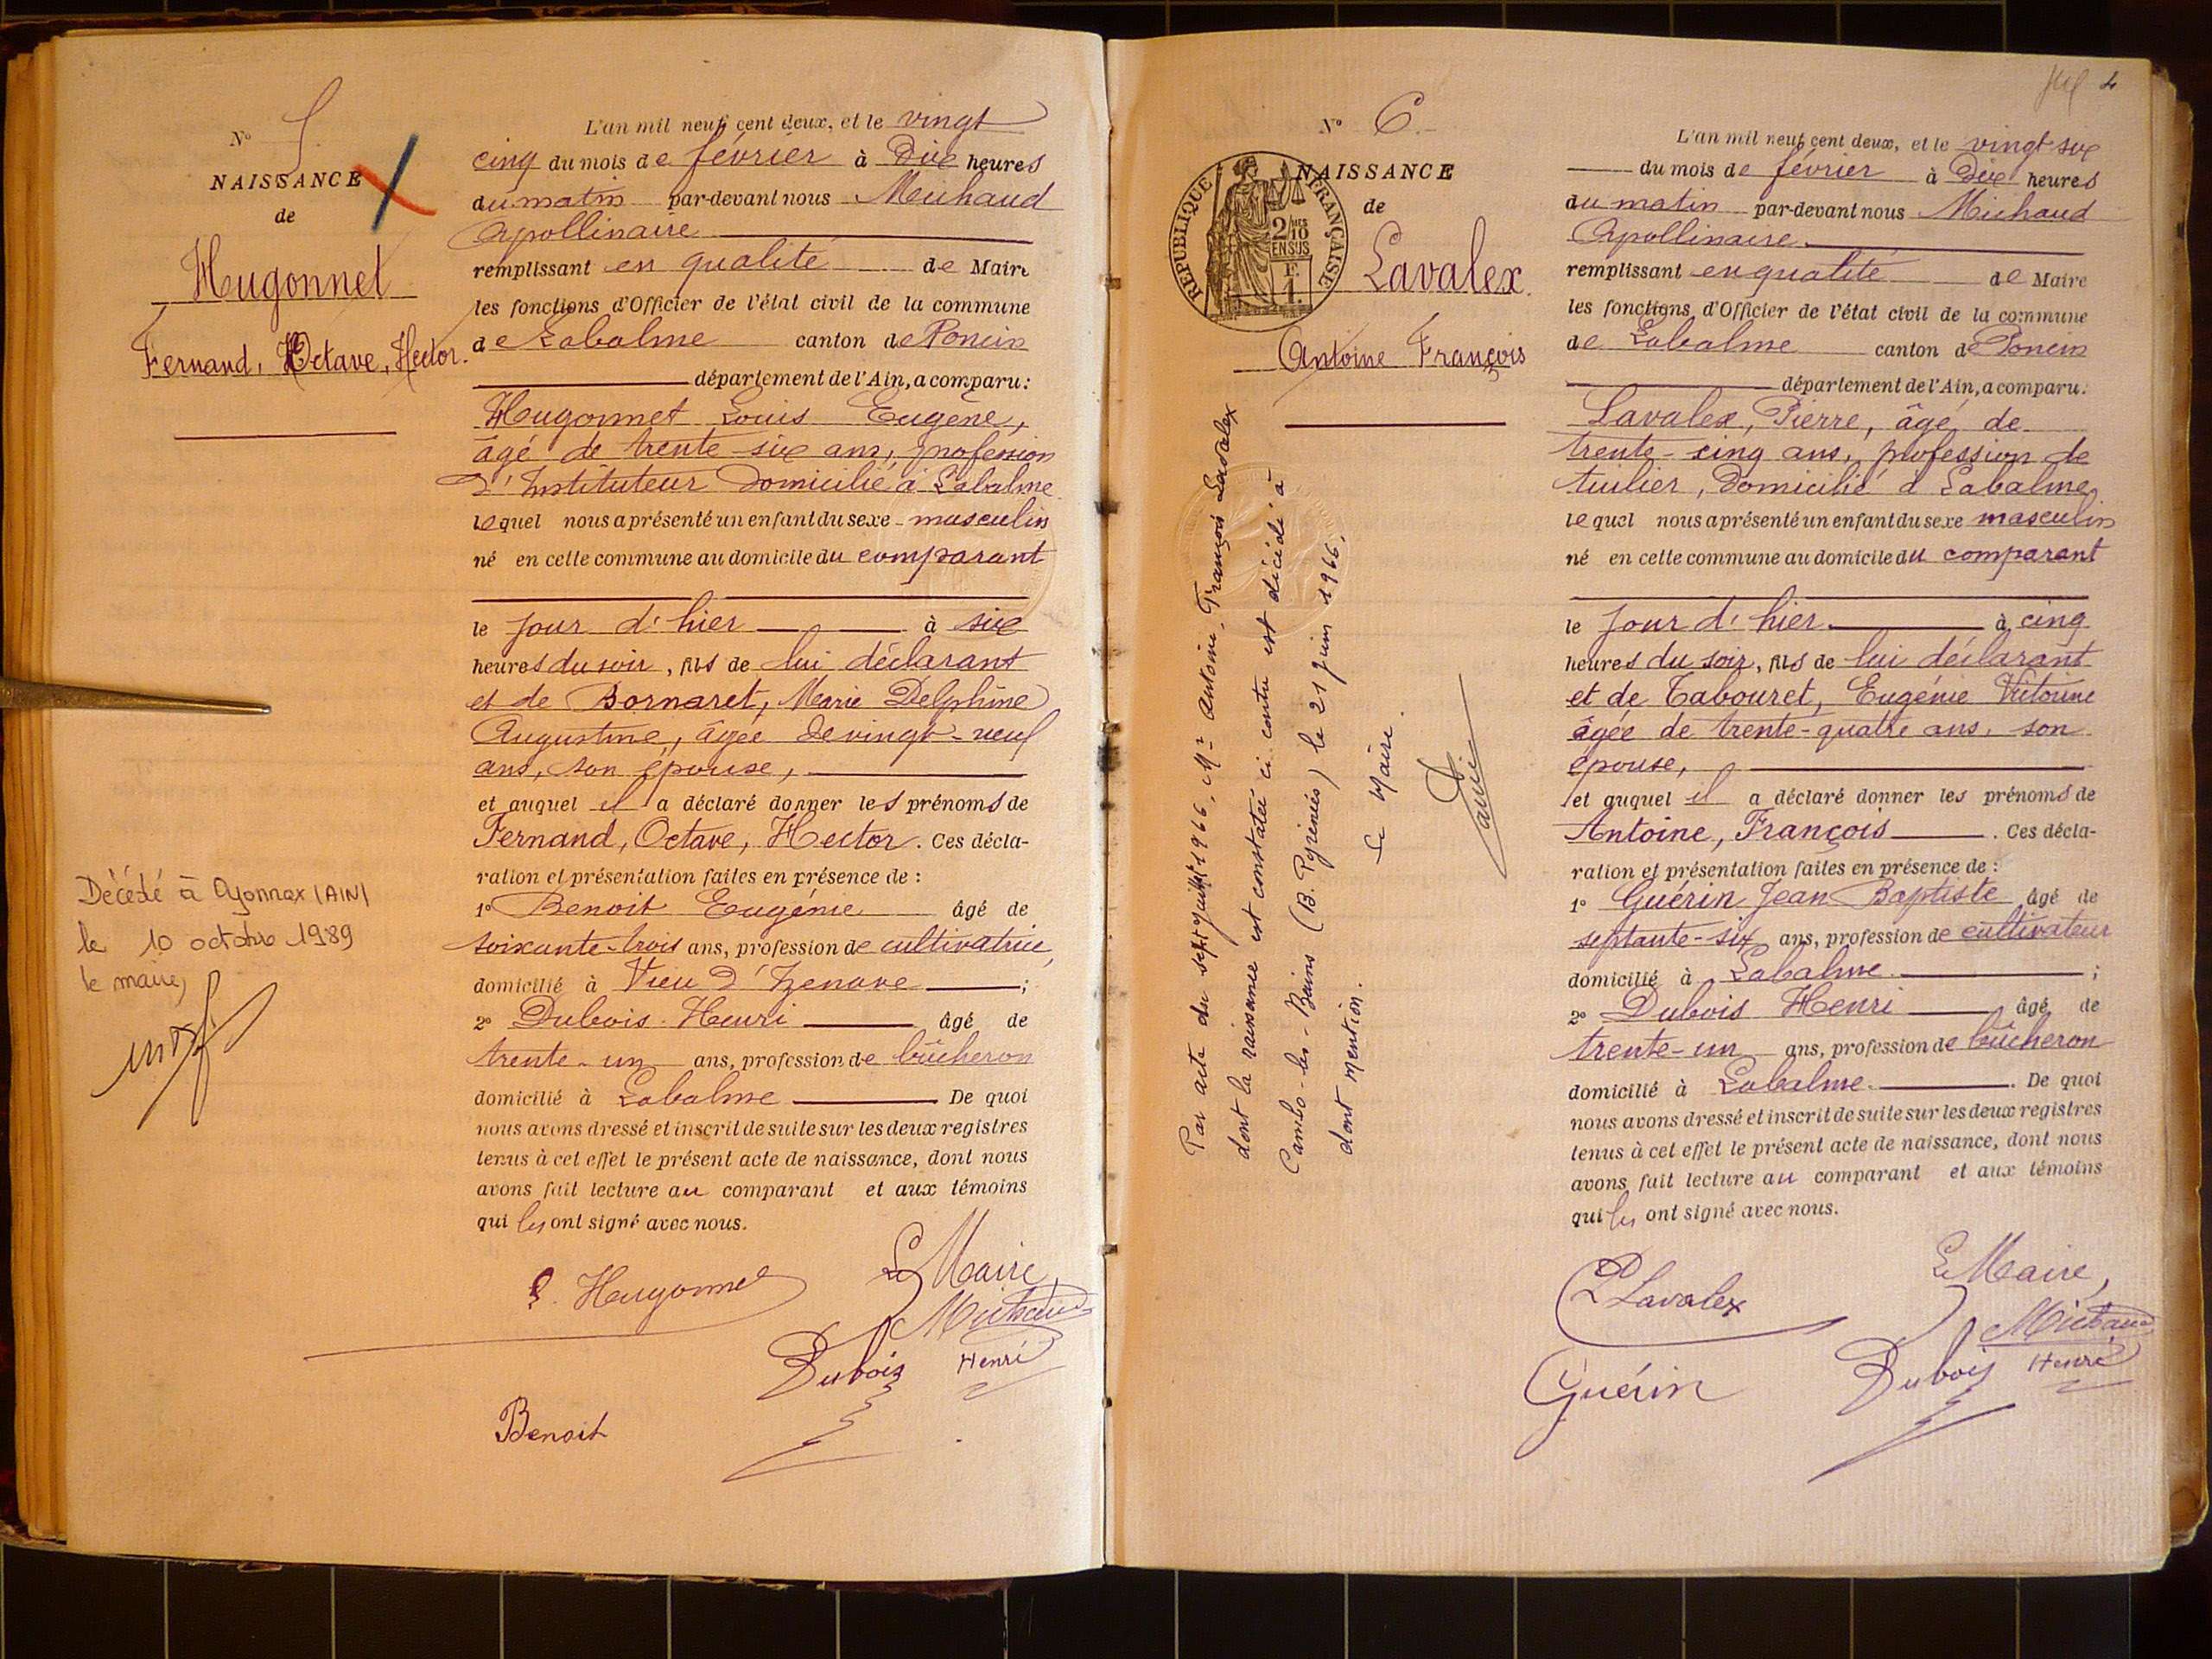 N° 5
NAISSANCE
de
Hugonnet
Fernand, Octave, Hector.
Décédé à Oyonnax (AIN)
le 10 octobre 1989
le maire,
L'an mil neuf cent deux, et le vingt
cinq du mois de février à Dix heures
du matin par-devant nous Michaud
Apollinaire
remplissant en qualité de Maire
les fonctions d'Officier de l'état civil de la commune
de Labalme canton de Poncin
département de l'Ain, a comparu:
Hugonnet Louis Eugène,
âgé de trente-six ans, profession
d'Instituteur domicilié à Labalme
lequel nous a présenté un enfant du sexe masculin
né en cette commune au domicile du comparant
le jour d'hier à six
heures du soir, fils de lui déclarant
et de Bornaret, Marie Delphine
Augustine, âgée de vingt-neuf
ans, son épouse,
et auquel il a déclaré donner les prénoms de
Fernand, Octave, Hector. Ces décla-
ration et présentation faites en présence de :
1° Benoit Eugénie âgé de
soixante-trois ans, profession de cultivatrice,
domicilié à Vieu d'Izenave ;
2° Dubois Henri âgé de
trente-un ans, profession de bûcheron
domicilié à Labalme De quoi
nous avons dressé et inscrit de suite sur les deux registres
tenus à cet effet le présent acte de naissance, dont nous
avons fait lecture au comparant et aux témoins
qui les ont signé avec nous.
Le Maire,
Hugonnet
Michaud
Dubois Henri
Benoit
4
N° 6.
NAISSANCE
de
Lavalex
Antoine François
RÉPUBLIQUE FRANÇAISE
2/10 EN SUS
F. 1.
Par acte du sept juillet 1966, Mr Antoine, François Lavalex
dont la naissance est constatée ci-contre est décédé à
Cambo-les-Bains (B. Pyrénées) le 21 juin 1966.
dont mention. Le Maire.
L'an mil neuf cent deux, et le vingt six
du mois de février à Dix heures
du matin par-devant nous Michaud
Apollinaire.
remplissant en qualité de Maire
les fonctions d'Officier de l'état civil de la commune
de Labalme canton de Poncin
département de l'Ain, a comparu:
Lavalex, Pierre, âgé de
trente-cinq ans, profession de
tuilier, domicilié à Labalme
lequel nous a présenté un enfant du sexe masculin
né en cette commune au domicile du comparant
le jour d'hier à cinq
heures du soir, fils de lui déclarant
et de Tabouret, Eugénie Victorine
âgée de trente-quatre ans, son
épouse,
et auquel il a déclaré donner les prénoms de
Antoine, François . Ces décla-
ration et présentation faites en présence de :
1° Guérin Jean Baptiste âgé de
septante-six ans, profession de cultivateur
domicilié à Labalme. ;
2° Dubois Henri âgé de
trente-un ans, profession de bûcheron
domicilié à Labalme. . De quoi
nous avons dressé et inscrit de suite sur les deux registres
tenus à cet effet le présent acte de naissance, dont nous
avons fait lecture au comparant et aux témoins
qui les ont signé avec nous.
Le Maire,
P Lavalex
Michaud
Guérin
Dubois Henri